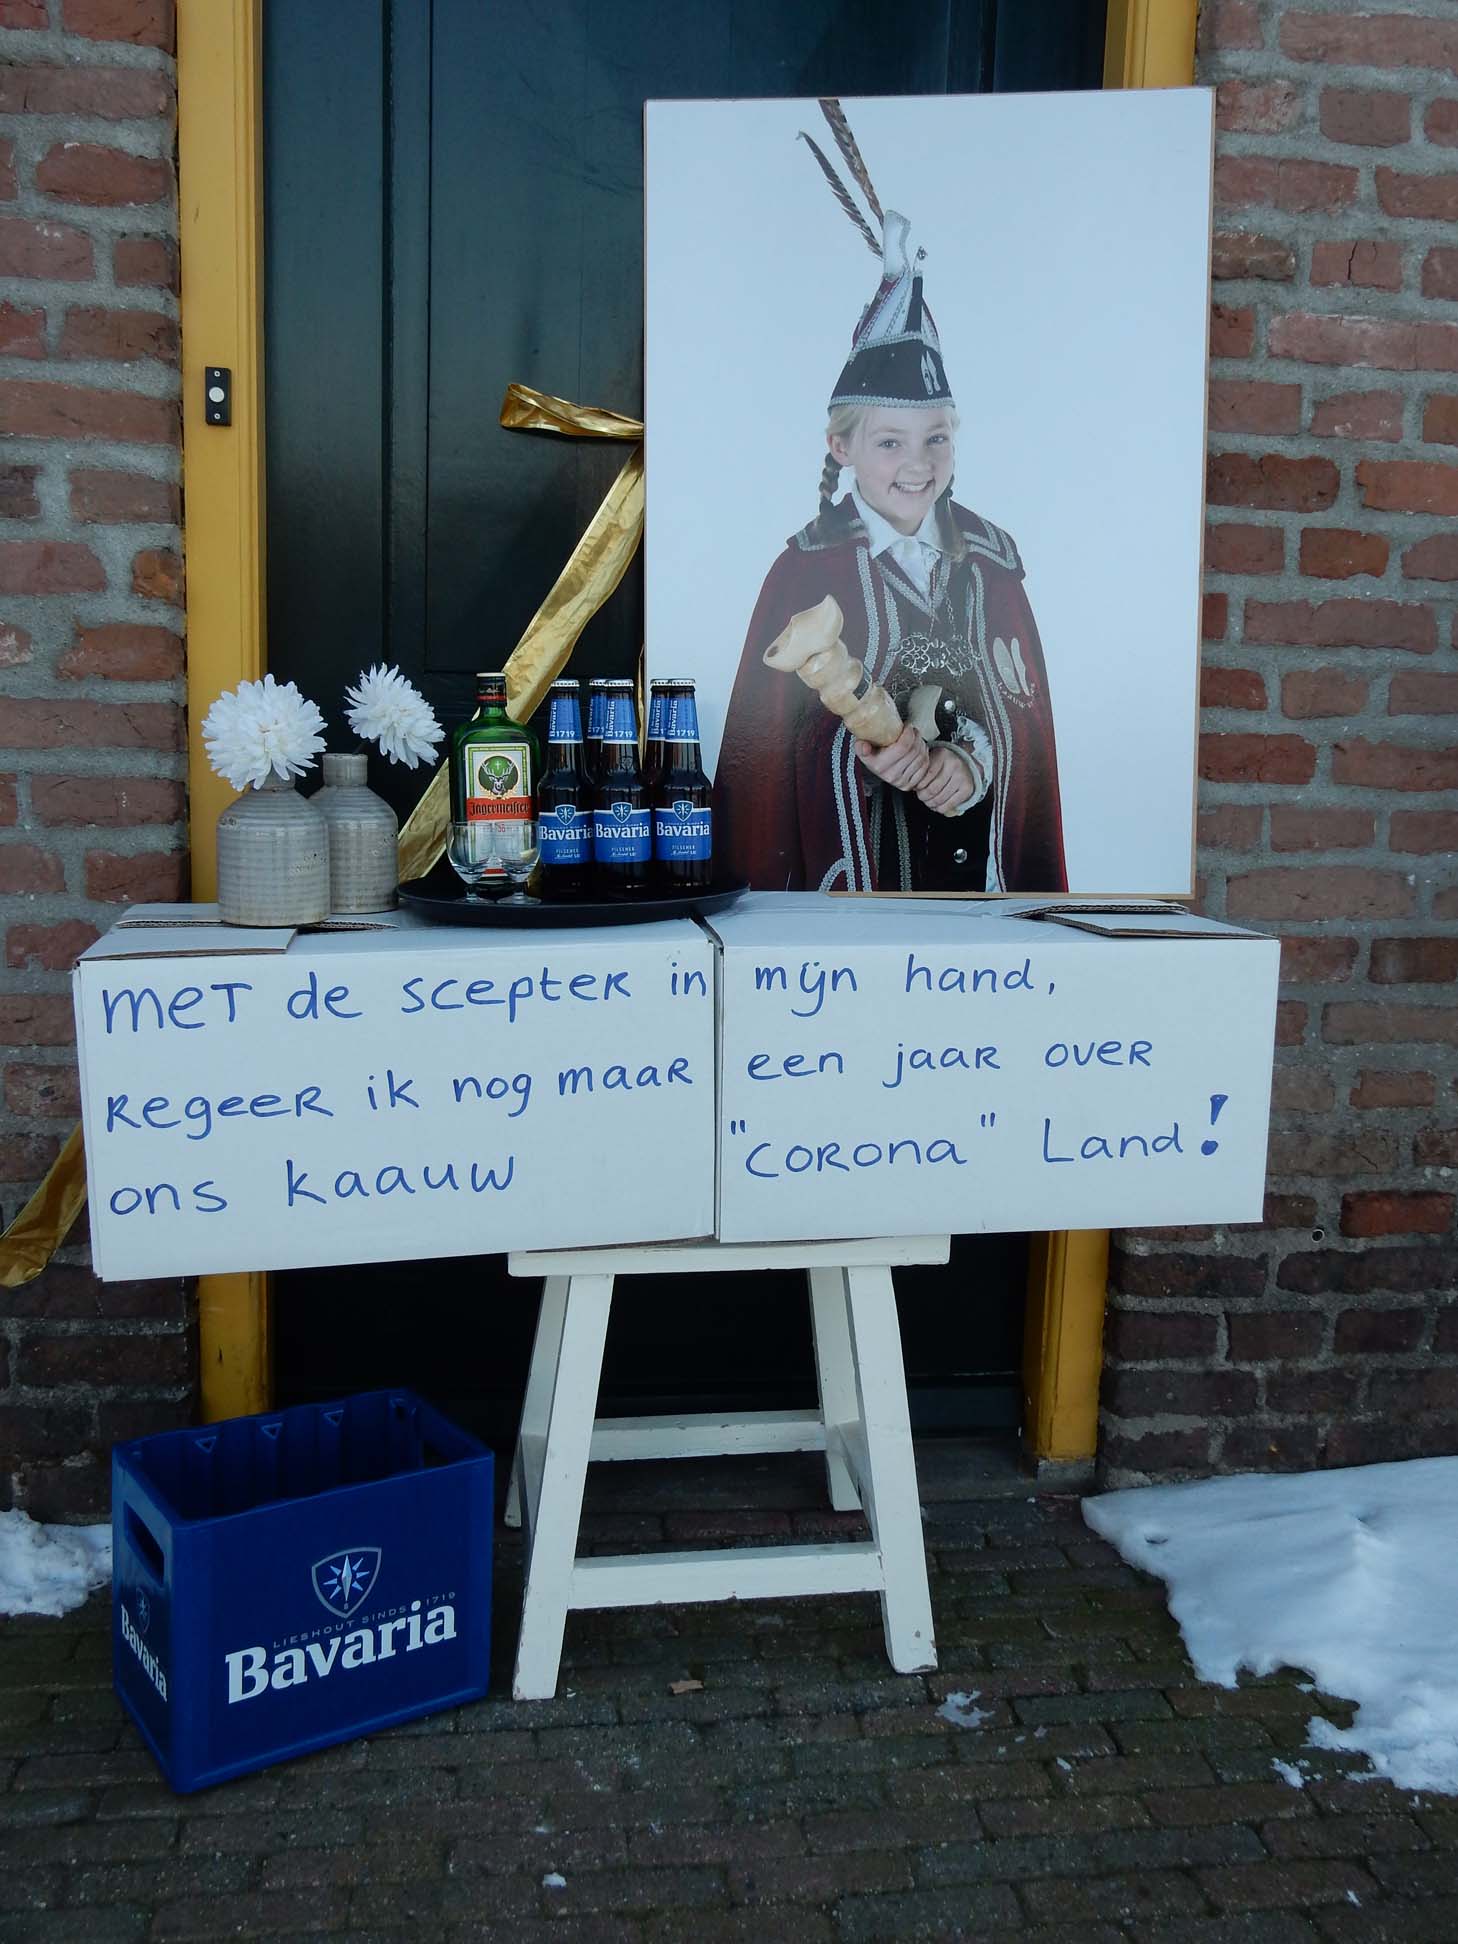 Jägermeister
Bavaria
1719
Bavaria
1719
Bavaria
1719
Bavaria
PILSENER
Bavaria
PILSENER
Bavaria
PILSENER
met de scepter in mijn hand,
regeer ik nog maar een jaar over
ons kaauw "corona" Land!
LIESHOUT SINDS 1719
Bavaria
Bavaria